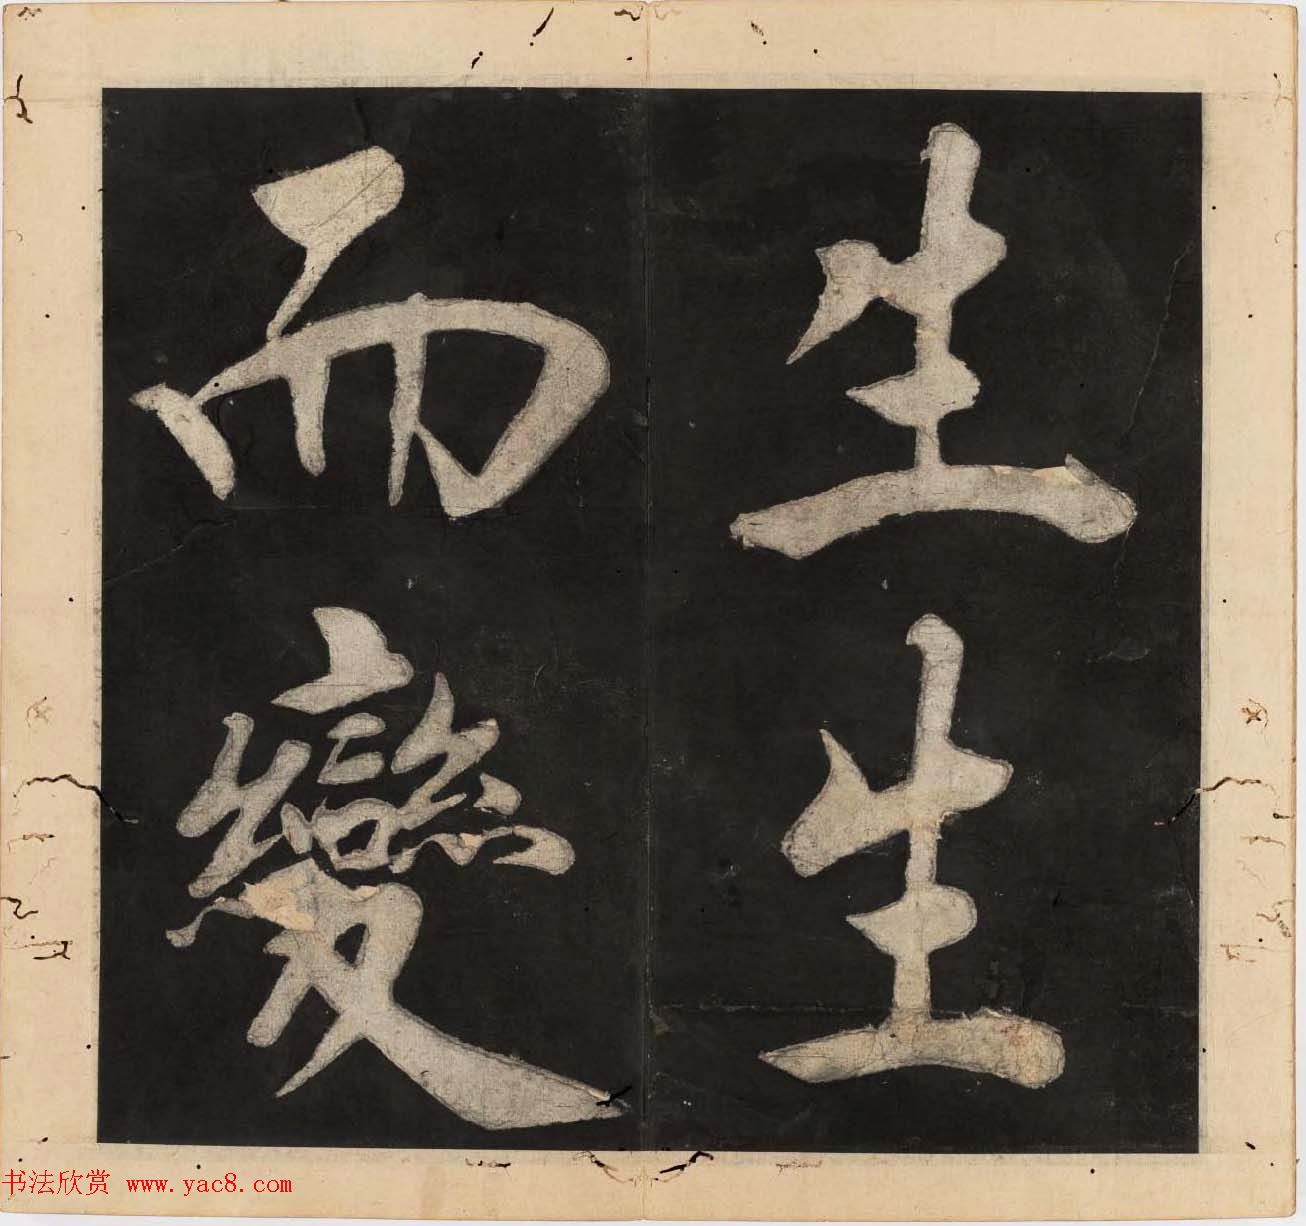 生生
而變
书法欣赏 www.yac8.com